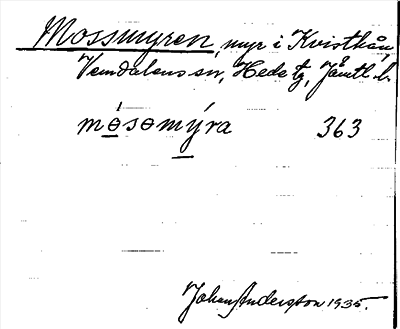 Mossmyren, myr i Kvistkån,
Vemdalens sn, Hede tg, Jämtl. l.
mɵ́sɵmýra 363
Johan Andersson 1935.